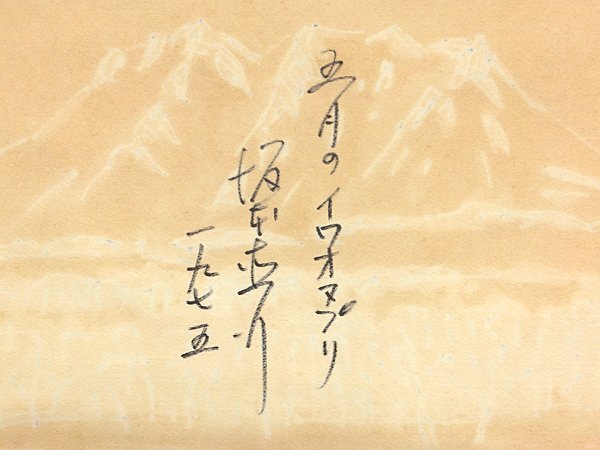 五月のイワオヌプリ
坂本直行
一九七五